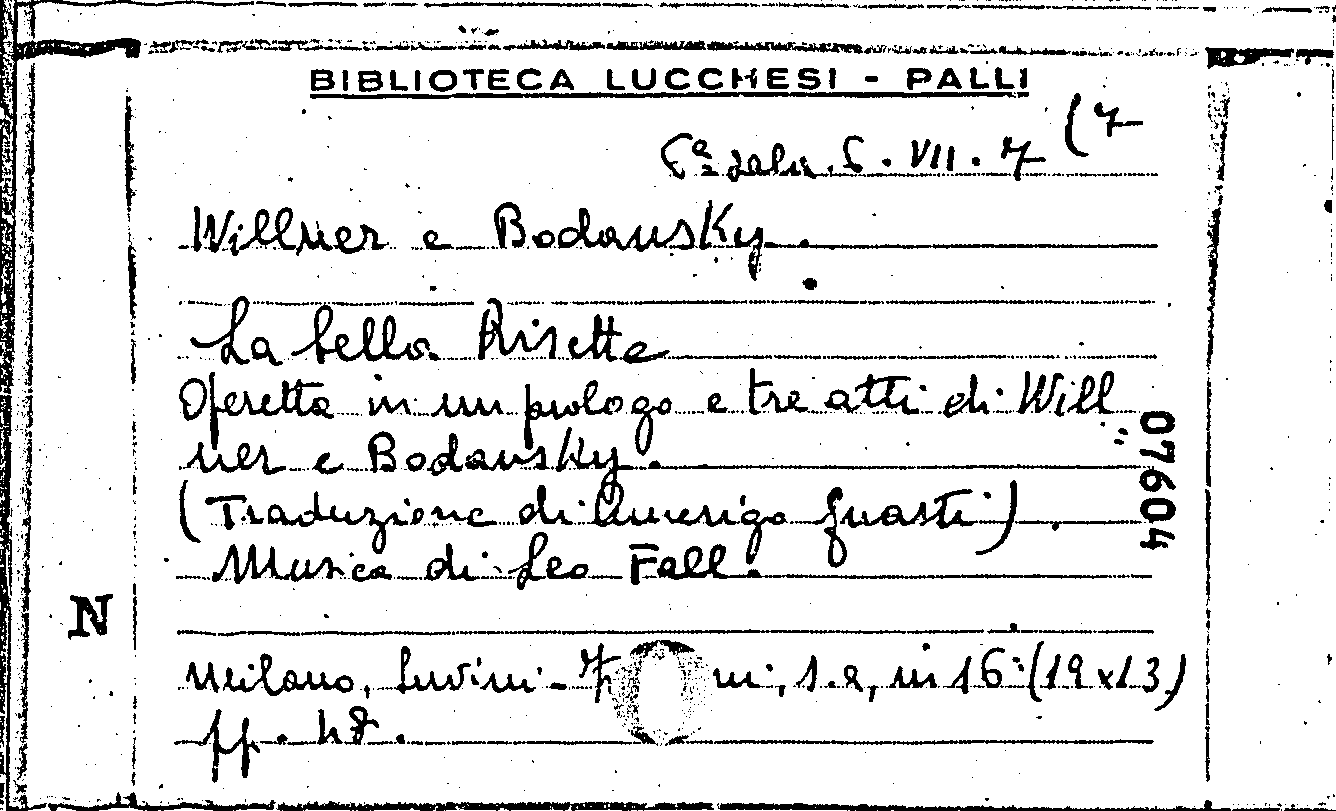 BIBLIOTECA LUCCHESI - PALLI
6ª sala. 6. VII. 7 (7
Willner e Bodansky.
La bella Risette
Operetta in un prologo e tre atti di Will
ner e Bodansky.
(Traduzione di Amerigo Guasti).
Musica di Leo Fall.
07604
N
Milano, Suvini - Z ni, s.a, in 16° (19x13)
pp. 48.